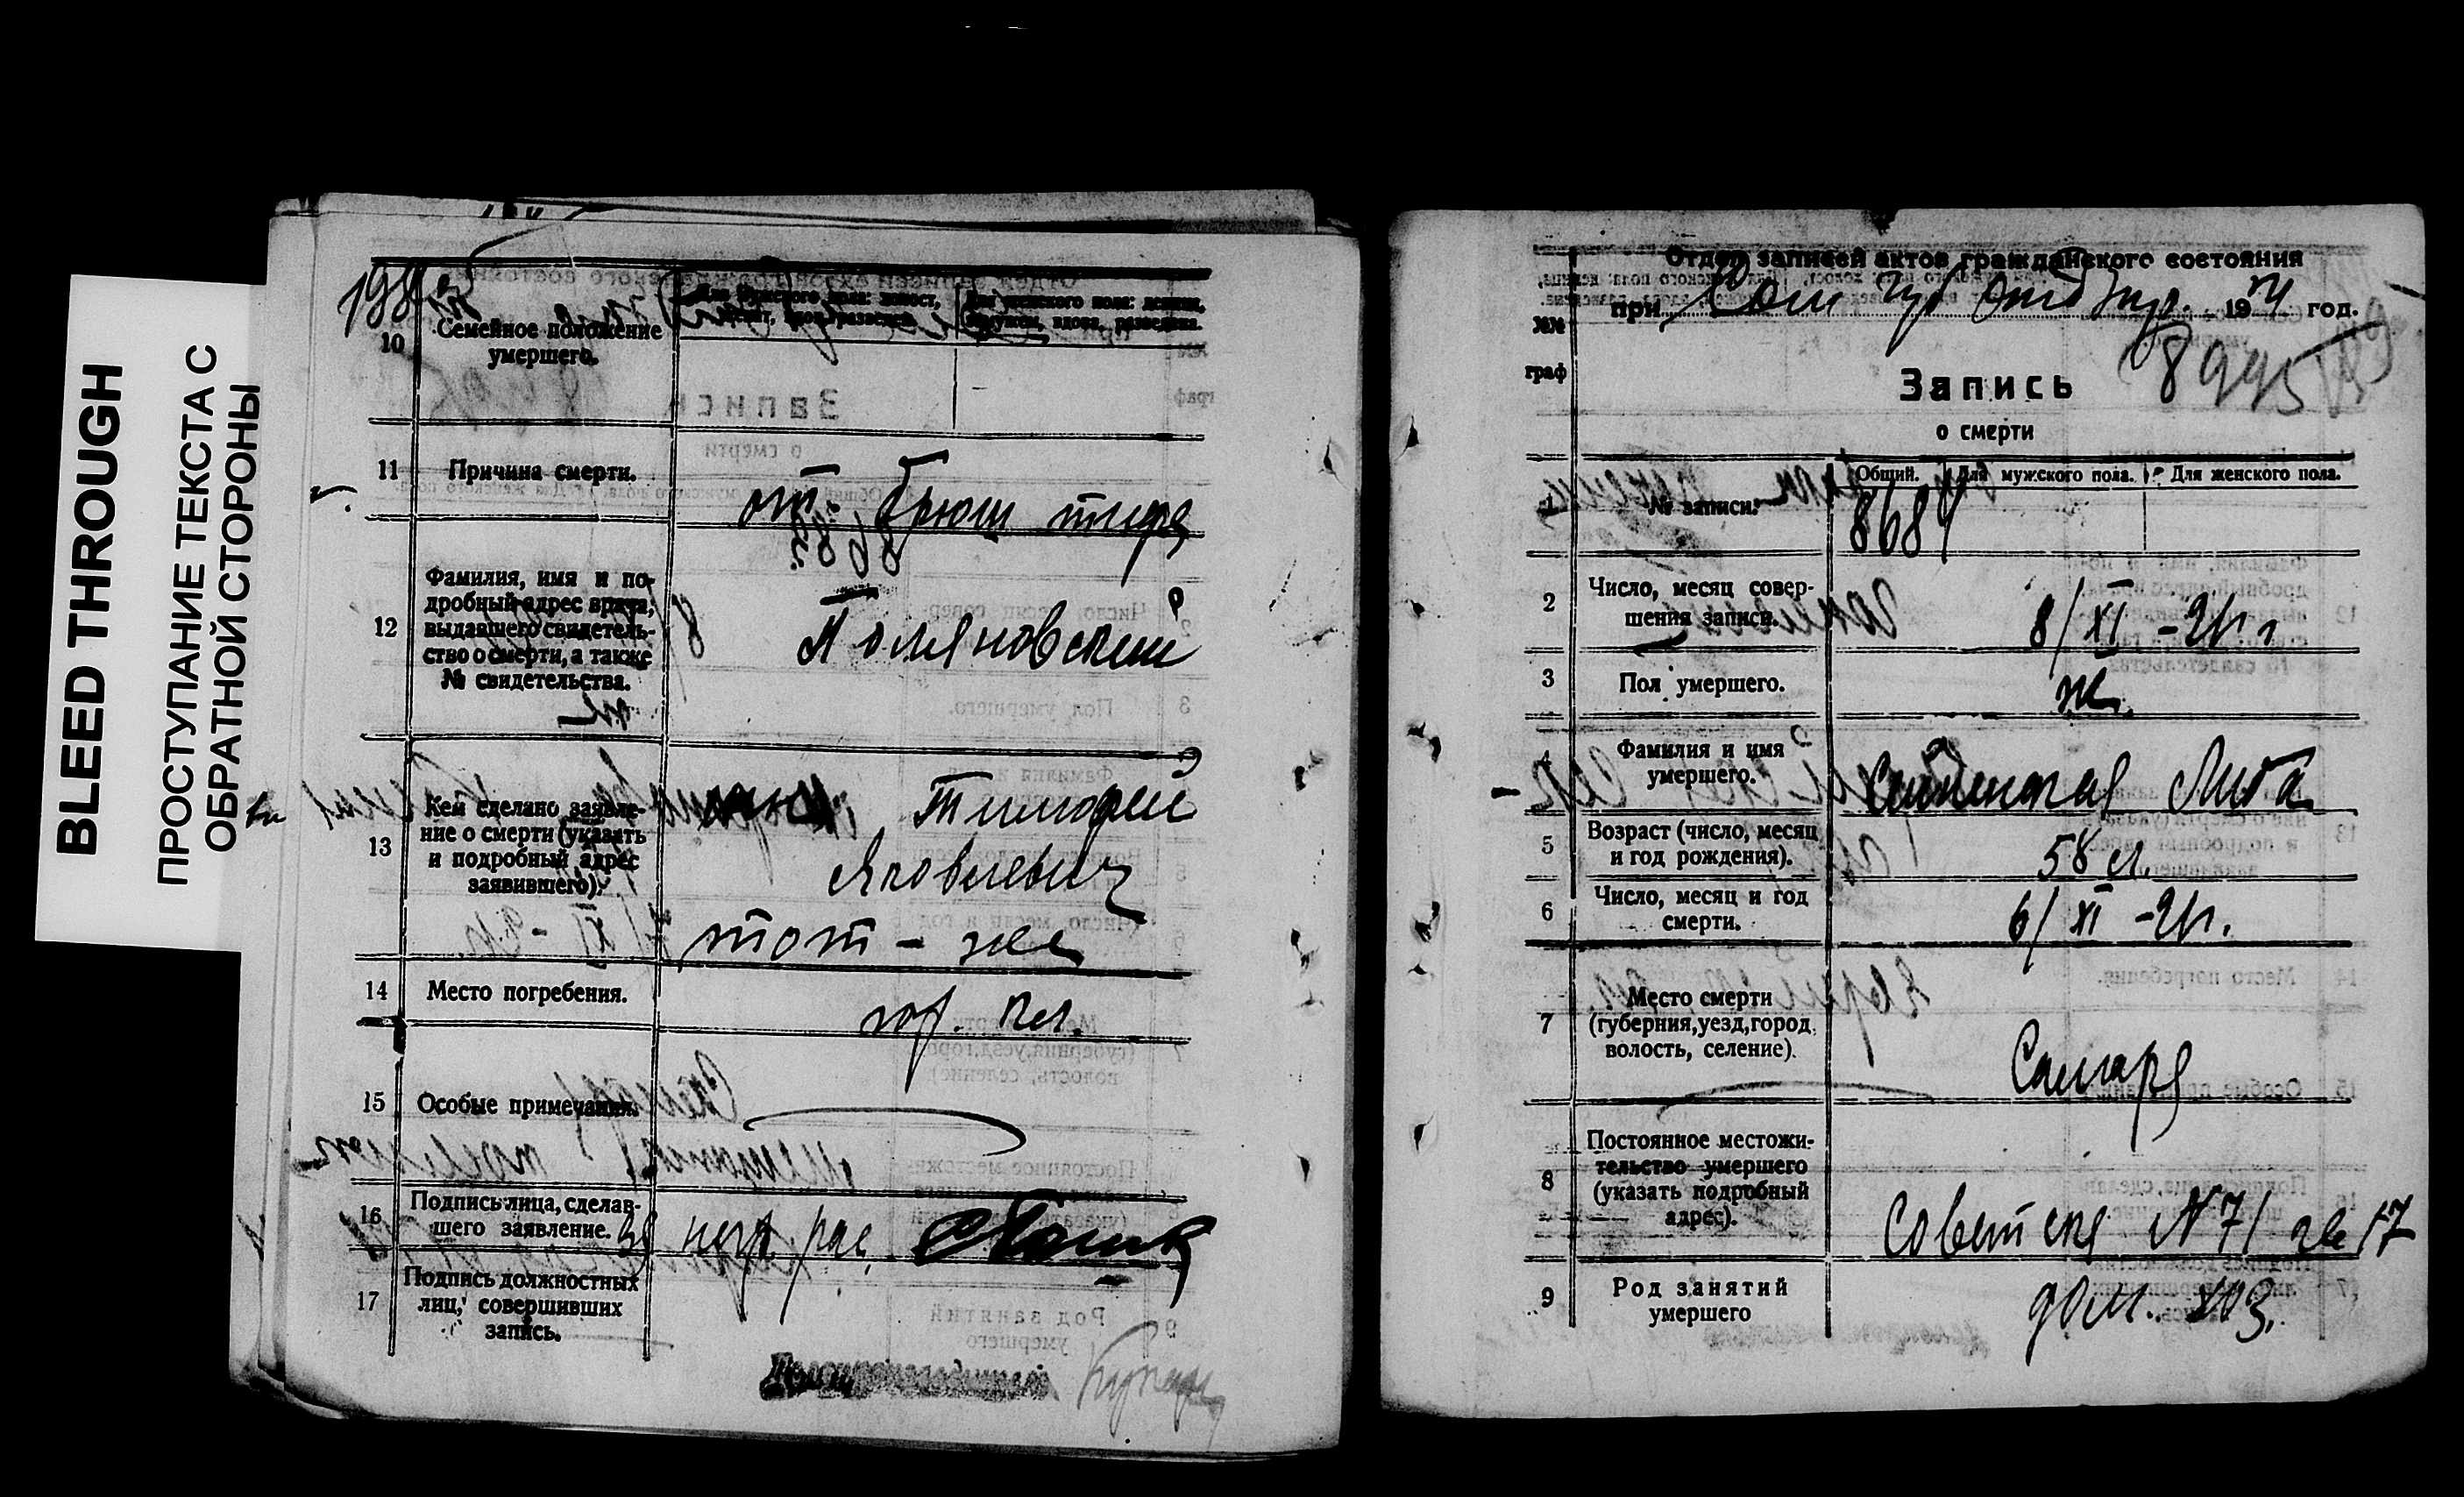 BLEED THROUGH
ПРОСТУПАНИЕ ТЕКСТА С
ОБРАТНОЙ СТОРОНЫ
10
Семейное положение
умершего.
Для мужского пола: холост,
женат, вдов, разведен.
Для женского пола: девица,
замужем, вдова, разведена.
11
Причина смерти.
от брюш тифа
12
Фамилия, имя и по-
дробный адрес врача,
выдавшего свидетель-
ство о смерти, а также
№ свидетельства.
Поляновский
13
Кем сделано заявле-
ние о смерти (указать
и подробный адрес
заявившего).
Тимофей
Яковлевич
тот - же
14
Место погребения.
гор. кл.
15
Особые примечания.
16
Подпись лица, сделав-
шего заявление.
за негр. рас.
17
Подпись должностных
лиц, совершивших
запись.
Отдел записей актов гражданского состояния
при Сам Губ Отд Упр. 1921 год.
№№
граф
8995
Запись
о смерти
Общий. Для мужского пола. Для женского пола.
1
№ записи.
8684
2
Число, месяц совер-
шения записи.
8/XI - 21 г
3
Пол умершего.
ж.
4
Фамилия и имя
умершего.
5
Возраст (число, месяц
и год рождения).
58 л.
6
Число, месяц и год
смерти.
6/XI - 21 г.
7
Место смерти
(губерния, уезд, город,
волость, селение).
Самара
8
Постоянное местожи-
тельство умершего
(указать подробный
адрес).
Советская № 71 кв 17
9
Род занятий
умершего
дом. хоз.